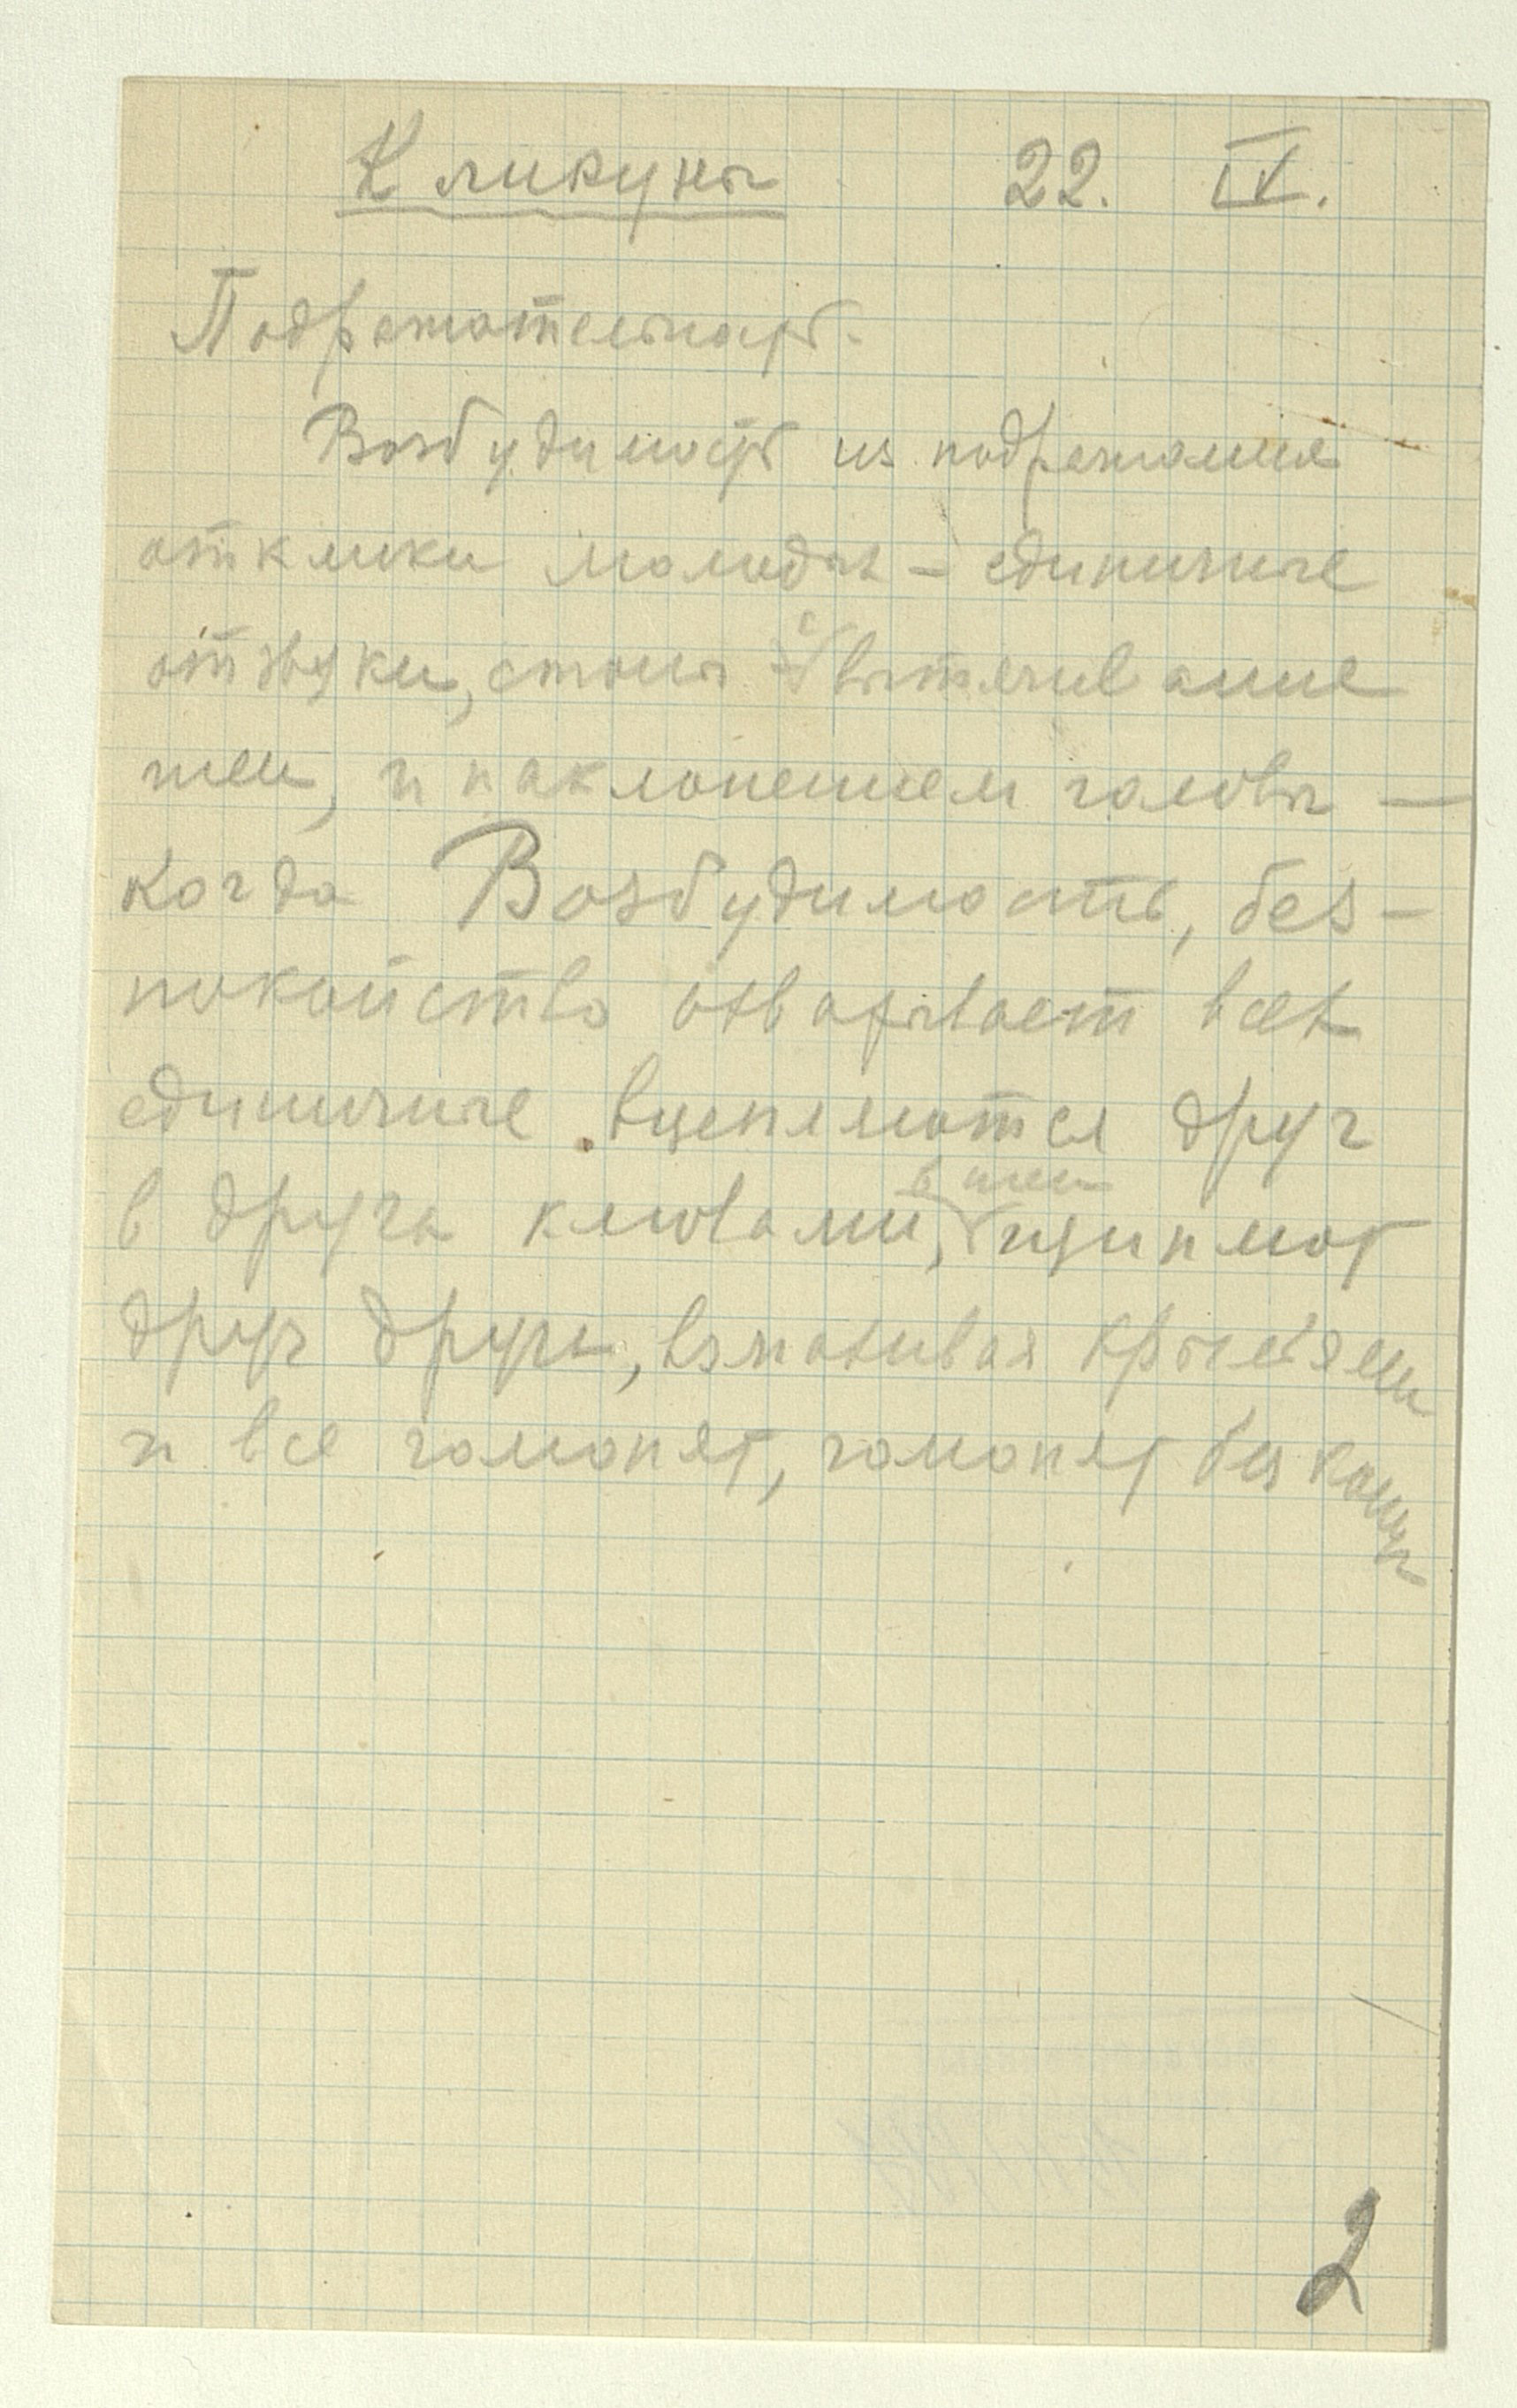 Кликуны 22. IV.
Подражательность.
Возбудимость из подражания
отклики молодых – единичные
отзвуки, стоны с вытягивание
шеи, и наклонением головы —
когда Возбудимость, без-
покойство охватывает всех
единичные вцепляются друг
в друга клювами, в шеи щиплют
друг друга, взмахивая крыльями
и все гомонят, гомонят без конца
2